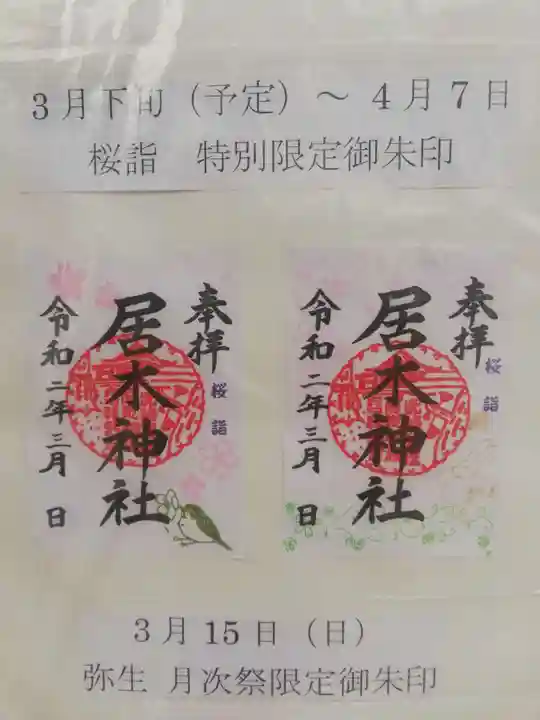 3月下旬（予定）～4月7日
桜詣　特別限定御朱印
奉拝
桜詣
居木神社
令和二年三月　日
奉拝
桜詣
居木神社
令和二年三月　日
3月15日（日）
弥生 月次祭限定御朱印